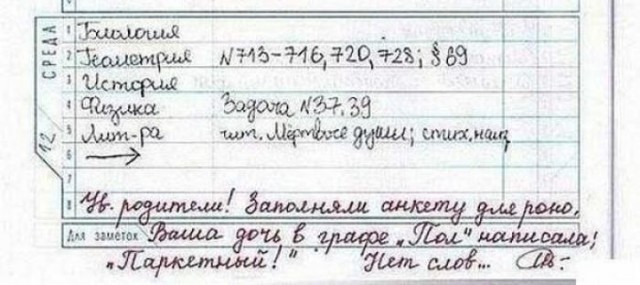 СРЕДА
12
1 Биология
2 Геометрия N713-716, 720, 728; § 69
3 История
4 Физика Задача N37,39
5 Лит-ра чит. Мёртвые души; стих. наиз
6 →
7
8 Ув. родители! Заполняли анкету для роно.
Для заметок Ваша дочь в графе „Пол" написала:
„Паркетный!" Нет слов...